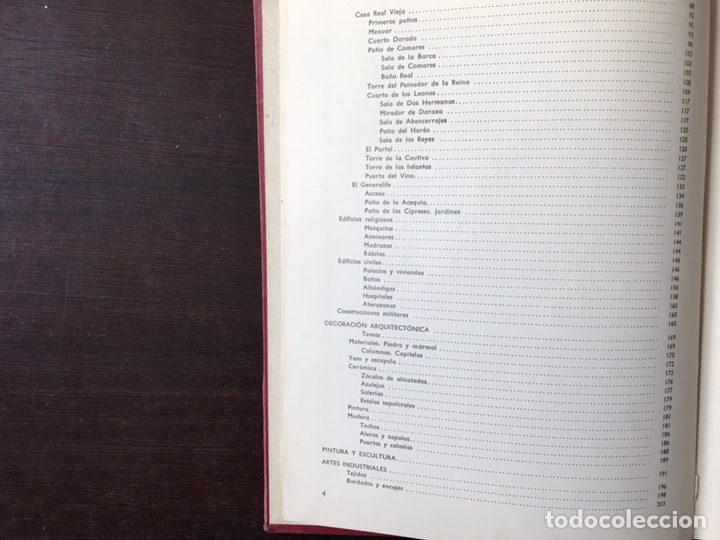 88
Casa Real Vieja 92
Primeros patios 95
Mexuar 95
Cuarto Dorado 98
Patio de Comares 103
Sala de la Barca 103
Sala de Comares 105
Baño Real 108
Torre del Peinador de la Reina 109
Cuarto de los Leones 117
Sala de Dos Hermanas 117
Mirador de Daraxa 117
Sala de Abencerrajes 120
Patio del Harén 120
Sala de los Reyes 120
El Partal 127
Torre de la Cautiva 127
Torre de las Infantas 132
Puerta del Vino 133
El Generalife 134
Acceso 136
Patio de la Acequia 139
Patio de los Cipreses. Jardines 141
Edificios religiosos 141
Mezquitas 144
Alminares 144
Madrazas 146
Rábitas 146
Edificios civiles 146
Palacios y viviendas 156
Baños 158
Alhóndigas 160
Hospitales 160
Atarazanas 160
Construcciones militares
DECORACIÓN ARQUITECTÓNICA 169
Temas 169
Materiales. Piedra y mármol 170
Columnas. Capiteles 172
Yeso y escayola 172
Cerámica 176
Zócalos de alicatados 177
Azulejos 179
Solerías 179
Estelas sepulcrales 181
Pintura 181
Madera 186
Techos 186
Aleros y zapatas 188
Puertas y celosías 189
PINTURA Y ESCULTURA 191
ARTES INDUSTRIALES 196
Tejidos 198
Bordados y encajes 203
4
todocoleccion